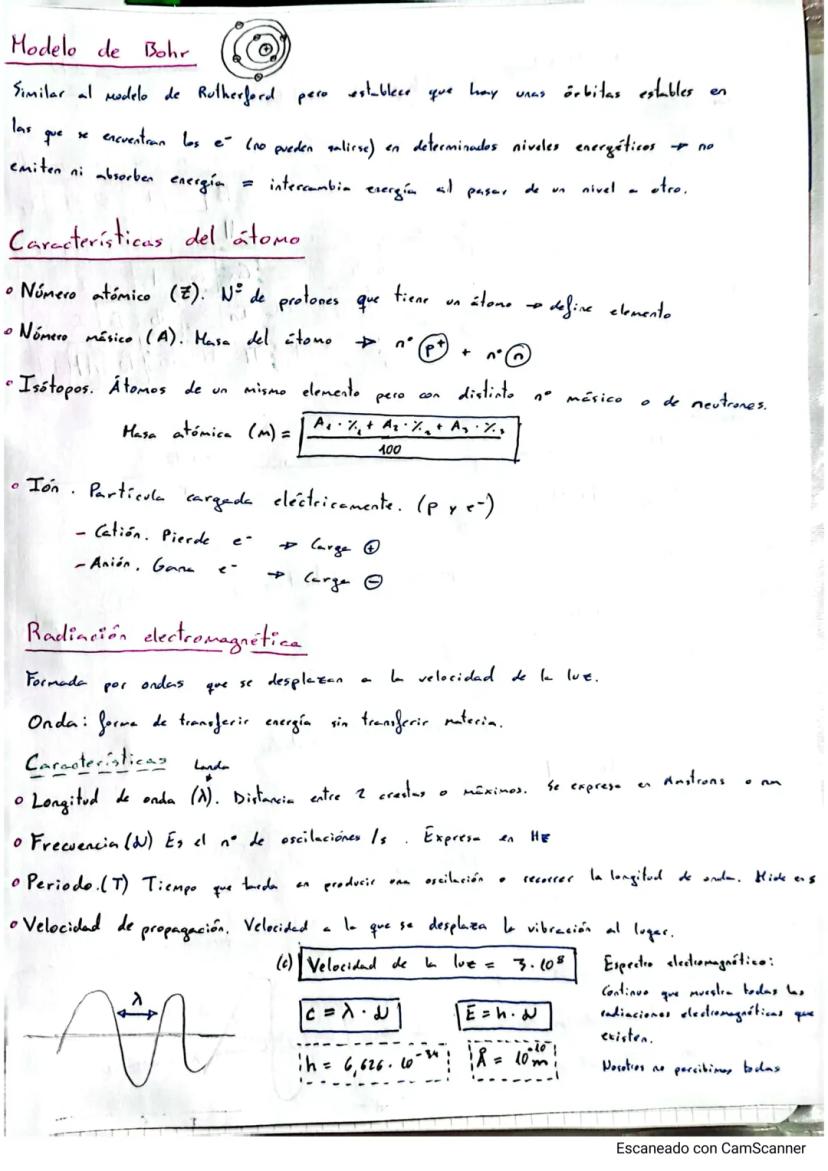 Modelo de Bohr
Similar al modelo de Rutherford pero establece que hay unas órbitas estables en
las que se encuentran los e⁻ (no pueden salirse) en determinados niveles energéticos → no
emiten ni absorben energía = intercambia energía al pasar de un nivel a otro.
Características del átomo
• Número atómico (Z). Nº de protones que tiene un átomo → define elemento
• Número másico (A). Masa del átomo → nº p⁺ + nº n
• Isótopos. Átomos de un mismo elemento pero con distinto nº másico o de neutrones.
Masa atómica (m) = A₁ · %₁ + A₂ · %₂ + A₃ · %₃
100
• Ión. Partícula cargada eléctricamente. (p y e⁻)
- Catión. Pierde e⁻ → Carga ⊕
- Anión. Gana e⁻ → Carga ⊖
Radiación electromagnética
Formada por ondas que se desplazan a la velocidad de la luz.
Onda: forma de transferir energía sin transferir materia.
Características
Landa
• Longitud de onda (λ). Distancia entre 2 crestas o máximos. Se expresa en Amstrons o nm
• Frecuencia (ν) Es el nº de oscilaciónes /s. Expresa en Hz
• Periodo. (T) Tiempo que tarda en producir una oscilación o recorrer la longitud de onda. Mide en s
• Velocidad de propagación. Velocidad a la que se desplaza la vibración al lugar.
(c) Velocidad de la luz = 3·10⁸
λ
c = λ · ν
E = h · ν
h = 6,626 · 10⁻³⁴
Å = 10⁻¹⁰ m
Espectro electromagnético:
Continuo que muestra todas las
radiaciones electromagnéticas que
existen.
Nosotros no percibimos todas
Escaneado con CamScanner